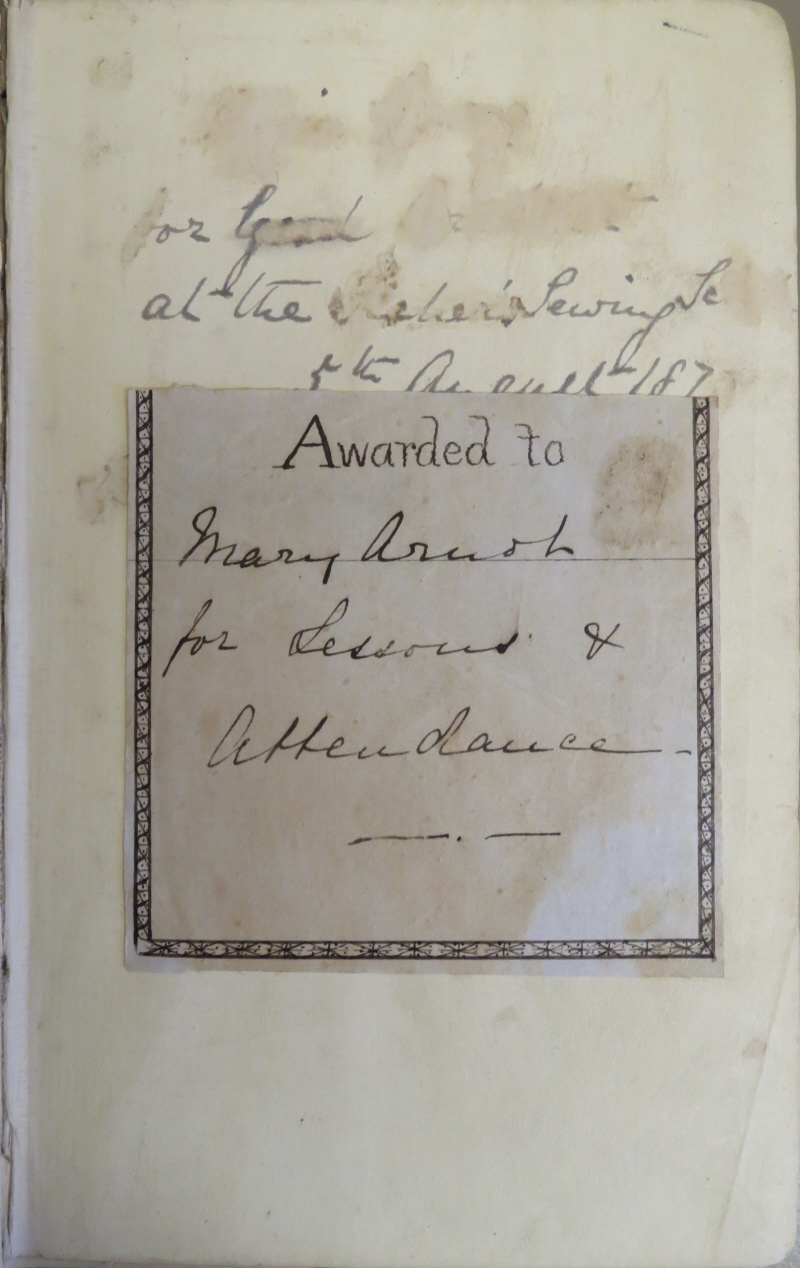 for Good
at the Fisher's Sewing Sc
5th August 187
Awarded to
Mary Arnot
for Lessons &
Attendance